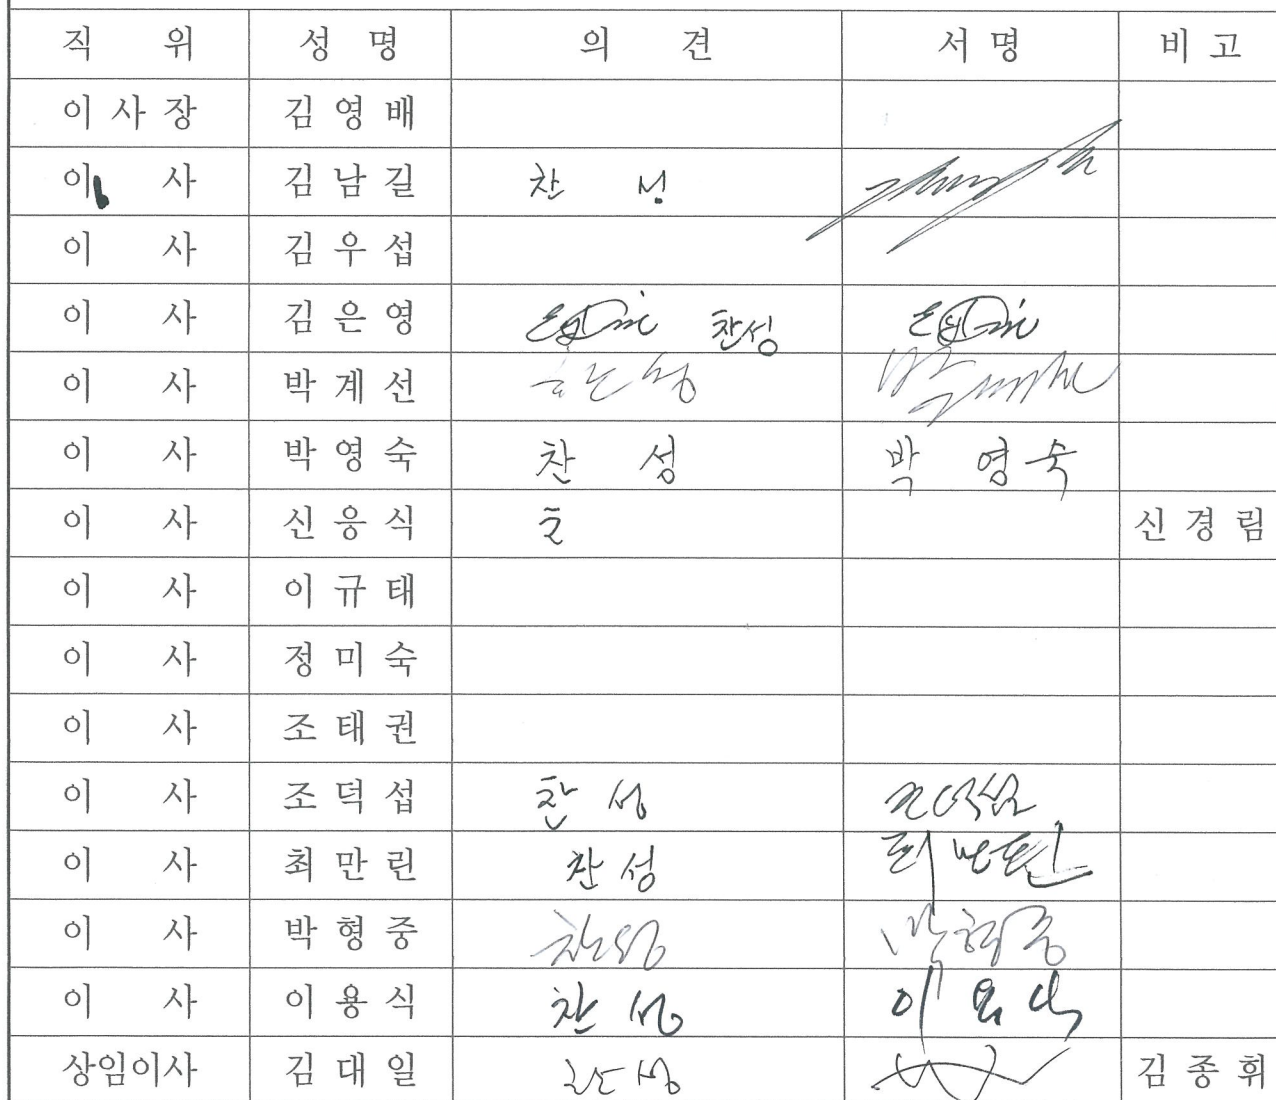 직 위 성 명 의 견 서 명 비 고
이 사 장 김 영 배
이 사 김 남 길 찬 성
이 사 김 우 섭
이 사 김 은 영 찬성
이 사 박 계 선 찬성
이 사 박 영 숙 찬 성 박 영 숙
이 사 신 응 식 신 경 림
이 사 이 규 태
이 사 정 미 숙
이 사 조 태 권
이 사 조 덕 섭 찬 성 조덕섭
이 사 최 만 린 찬 성 최만린
이 사 박 형 중 찬성 박형중
이 사 이 용 식 찬 성 이 용 식
상임이사 김 대 일 찬성 김 종 휘